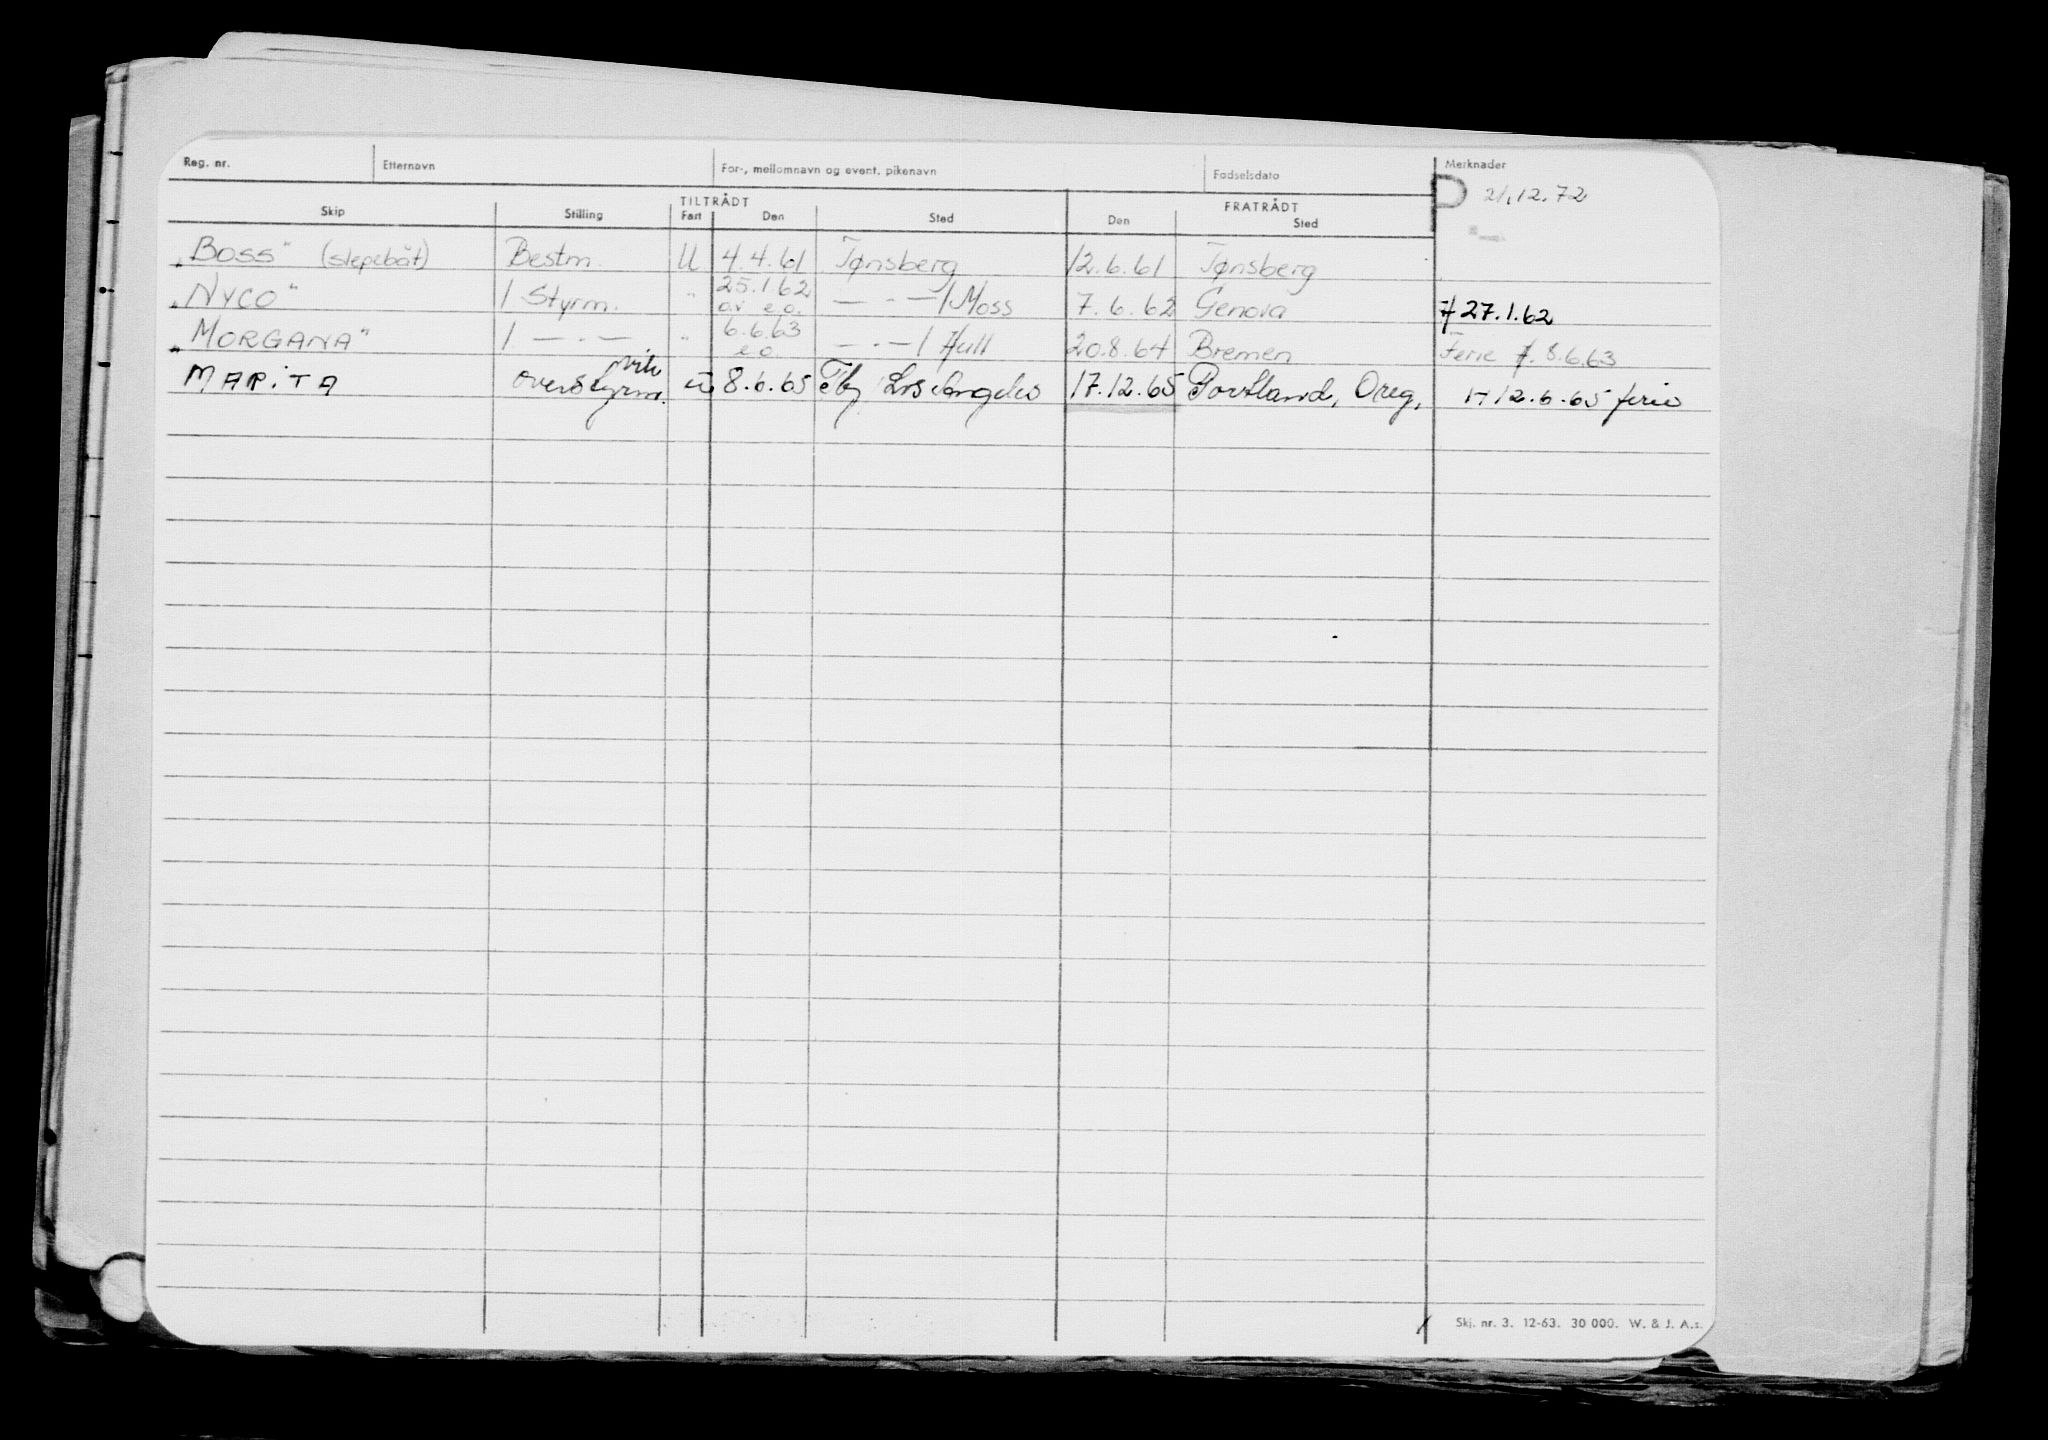 Reg. nr. Etternavn For-, mellomnavn og event. pikenavn Fødselsdato Merknader
D 21.12.72
TILTRÅDT FRATRÅDT
Skip Stilling Fart Den Sted Den Sted
"BOSS" (slepebåt) Bestm. U 4.4.61 Tønsberg 12.6.61 Tønsberg
"NYCO" 1 Styrm. " 25.1.62 o.v e.o. — · — / Moss 7.6.62 Genova 27.1.62
"MORGANA" 1 — · — " 6.6.63 e.o. — · — / Hull 20.8.64 Bremen Ferie f. 8.6.63
MARITA overstyrm. u 8.6.65 Tbg / Los Angeles 17.12.65 Portland, Oreg, 12.6.65 ferie
Skj. nr. 3. 12-63. 30 000. W. & J. A.s.